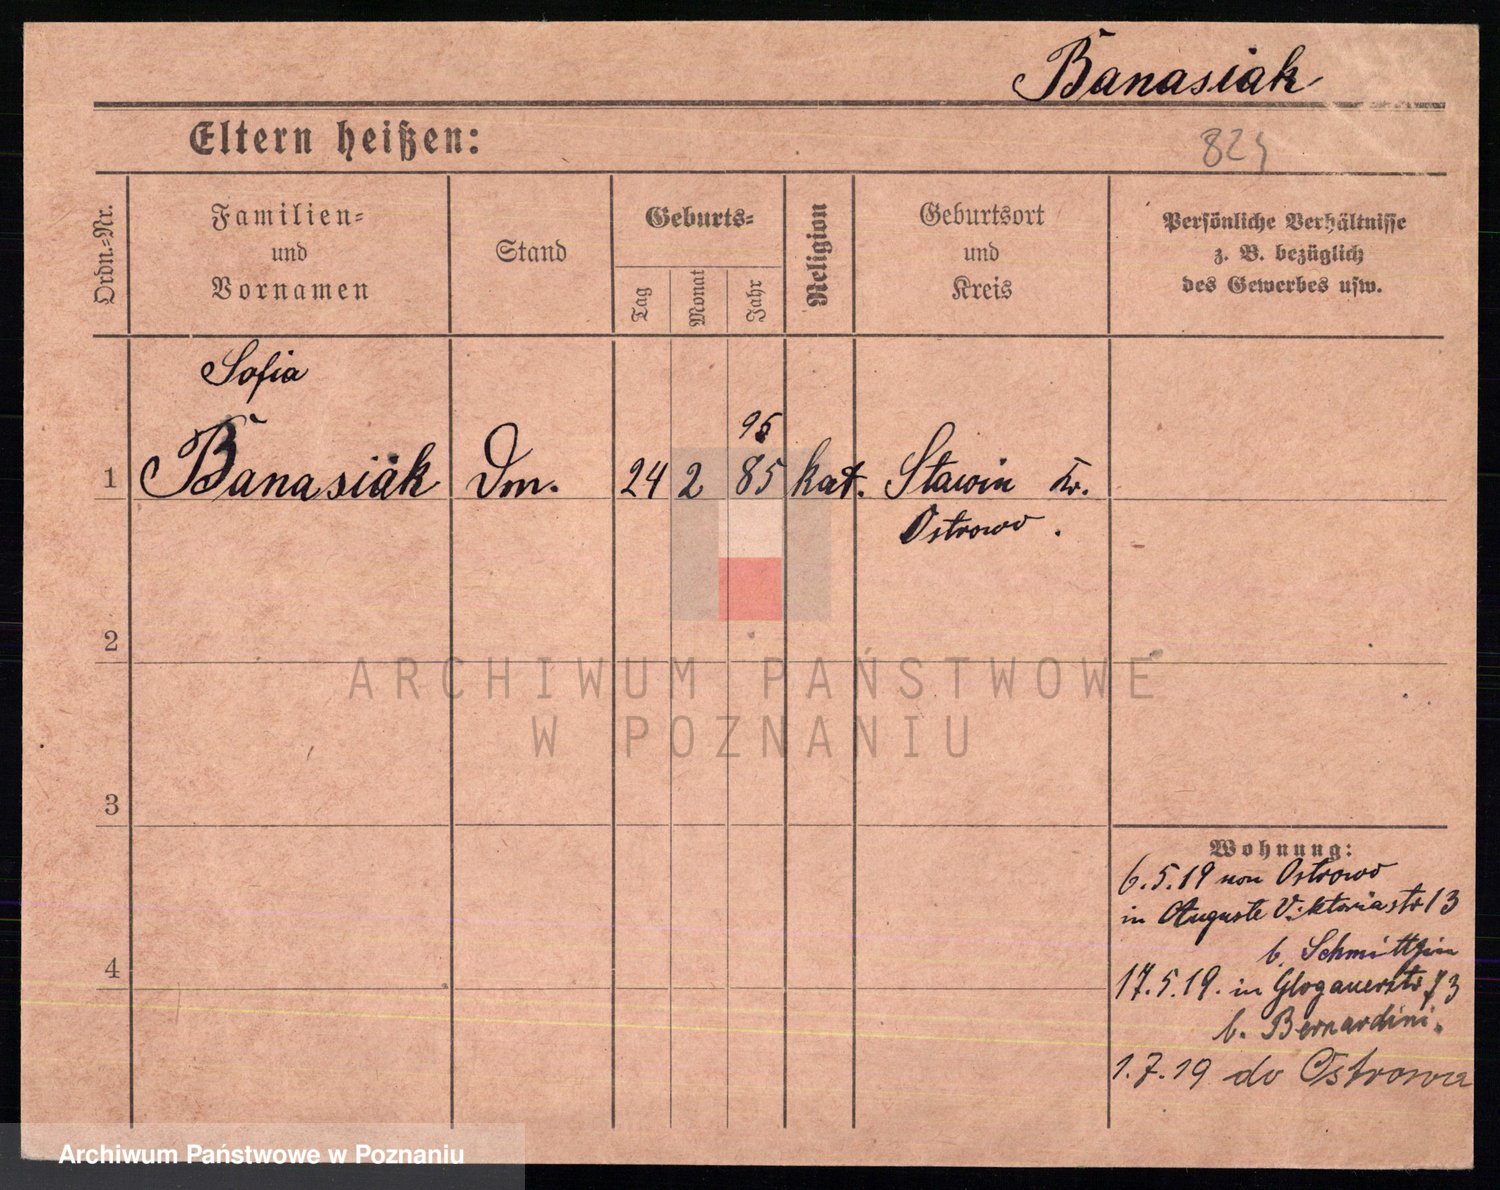 Banasiak
Eltern heißen:
824
Ordn.=Nr.
Familien=
und
Vornamen
Stand
Geburts=
Tag
Monat
Jahr
Religion
Geburtsort
und
Kreis
Persönliche Verhältnisse
z. B. bezüglich
des Gewerbes usw.
Sofia
95
1 Banasiak Dm. 24 2 85 kat. Stawin Kr.
Ostrowo.
2
3
4
Wohnung:
6.5.19 von Ostrowo
in Auguste Viktoriastr 13
b.
17.5.19. in Glogauerstr 73
b. Bernardini.
1.7.19 do Ostrowa
ARCHIWUM PAŃSTWOWE
W POZNANIU
Archiwum Państwowe w Poznaniu